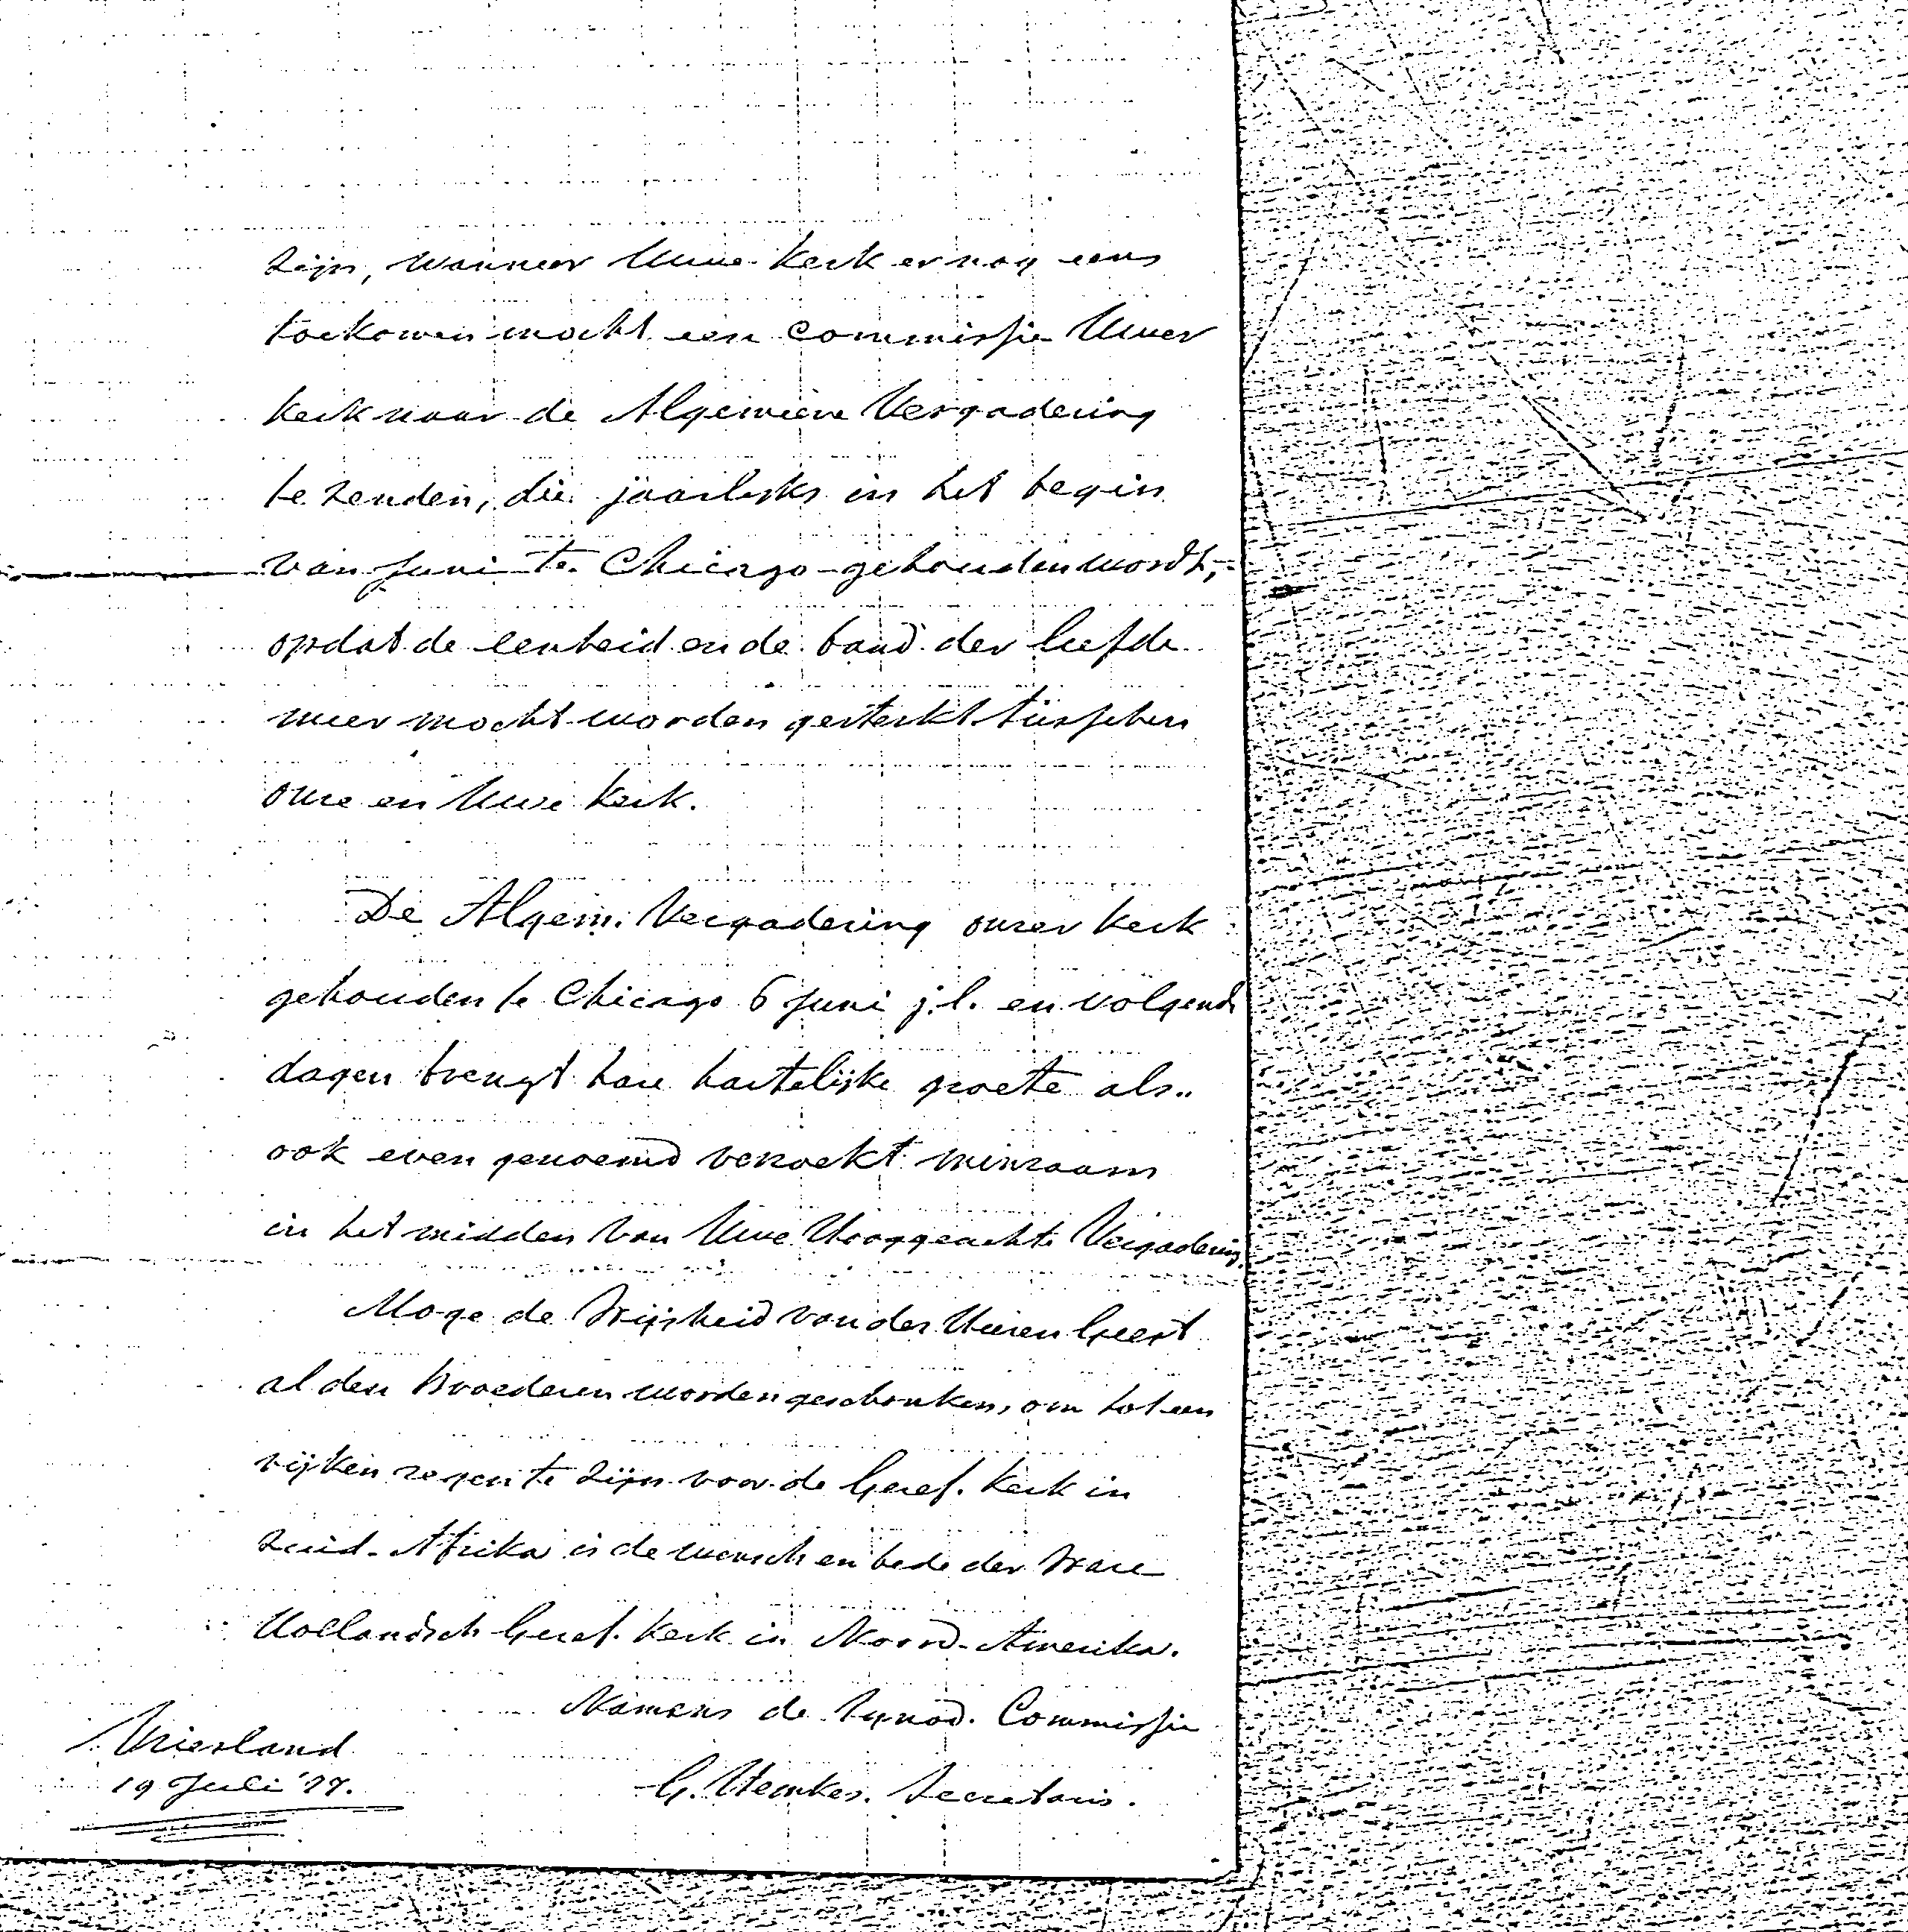 zijn, wanneer Uwe Kerk er nog eens
toekomen mocht een commissie Uwer
Kerk naar de Algemeene Vergadering
te zenden, die jaarlijks in het begin
van Juni te Chicago gehouden wordt,
opdat de eenheid en de band der liefde
meer mocht worden gesterkt tusschen
onze en Uwe Kerk.
De Algem. Vergadering onzer Kerk
gehouden te Chicago 6 Juni j.l. en volgende
dagen brengt hare hartelijke groete als
ook even genoemd verzoekt minzaam
in het midden van Uwe Hooggeachte Vergadering.
Moge de Wijsheid van des Heeren Geest
al den Broederen worden geschonken, om tot een
rijken zegen te zijn voor de Geref. Kerk in
Zuid-Afrika is de wensch en bede der Ware
Hollandsch Geref. Kerk in Noord-Amerika.
Namens de Synod. Commissie
Vriesland
19 Juli '77.
G. Hemkes. Secretaris.